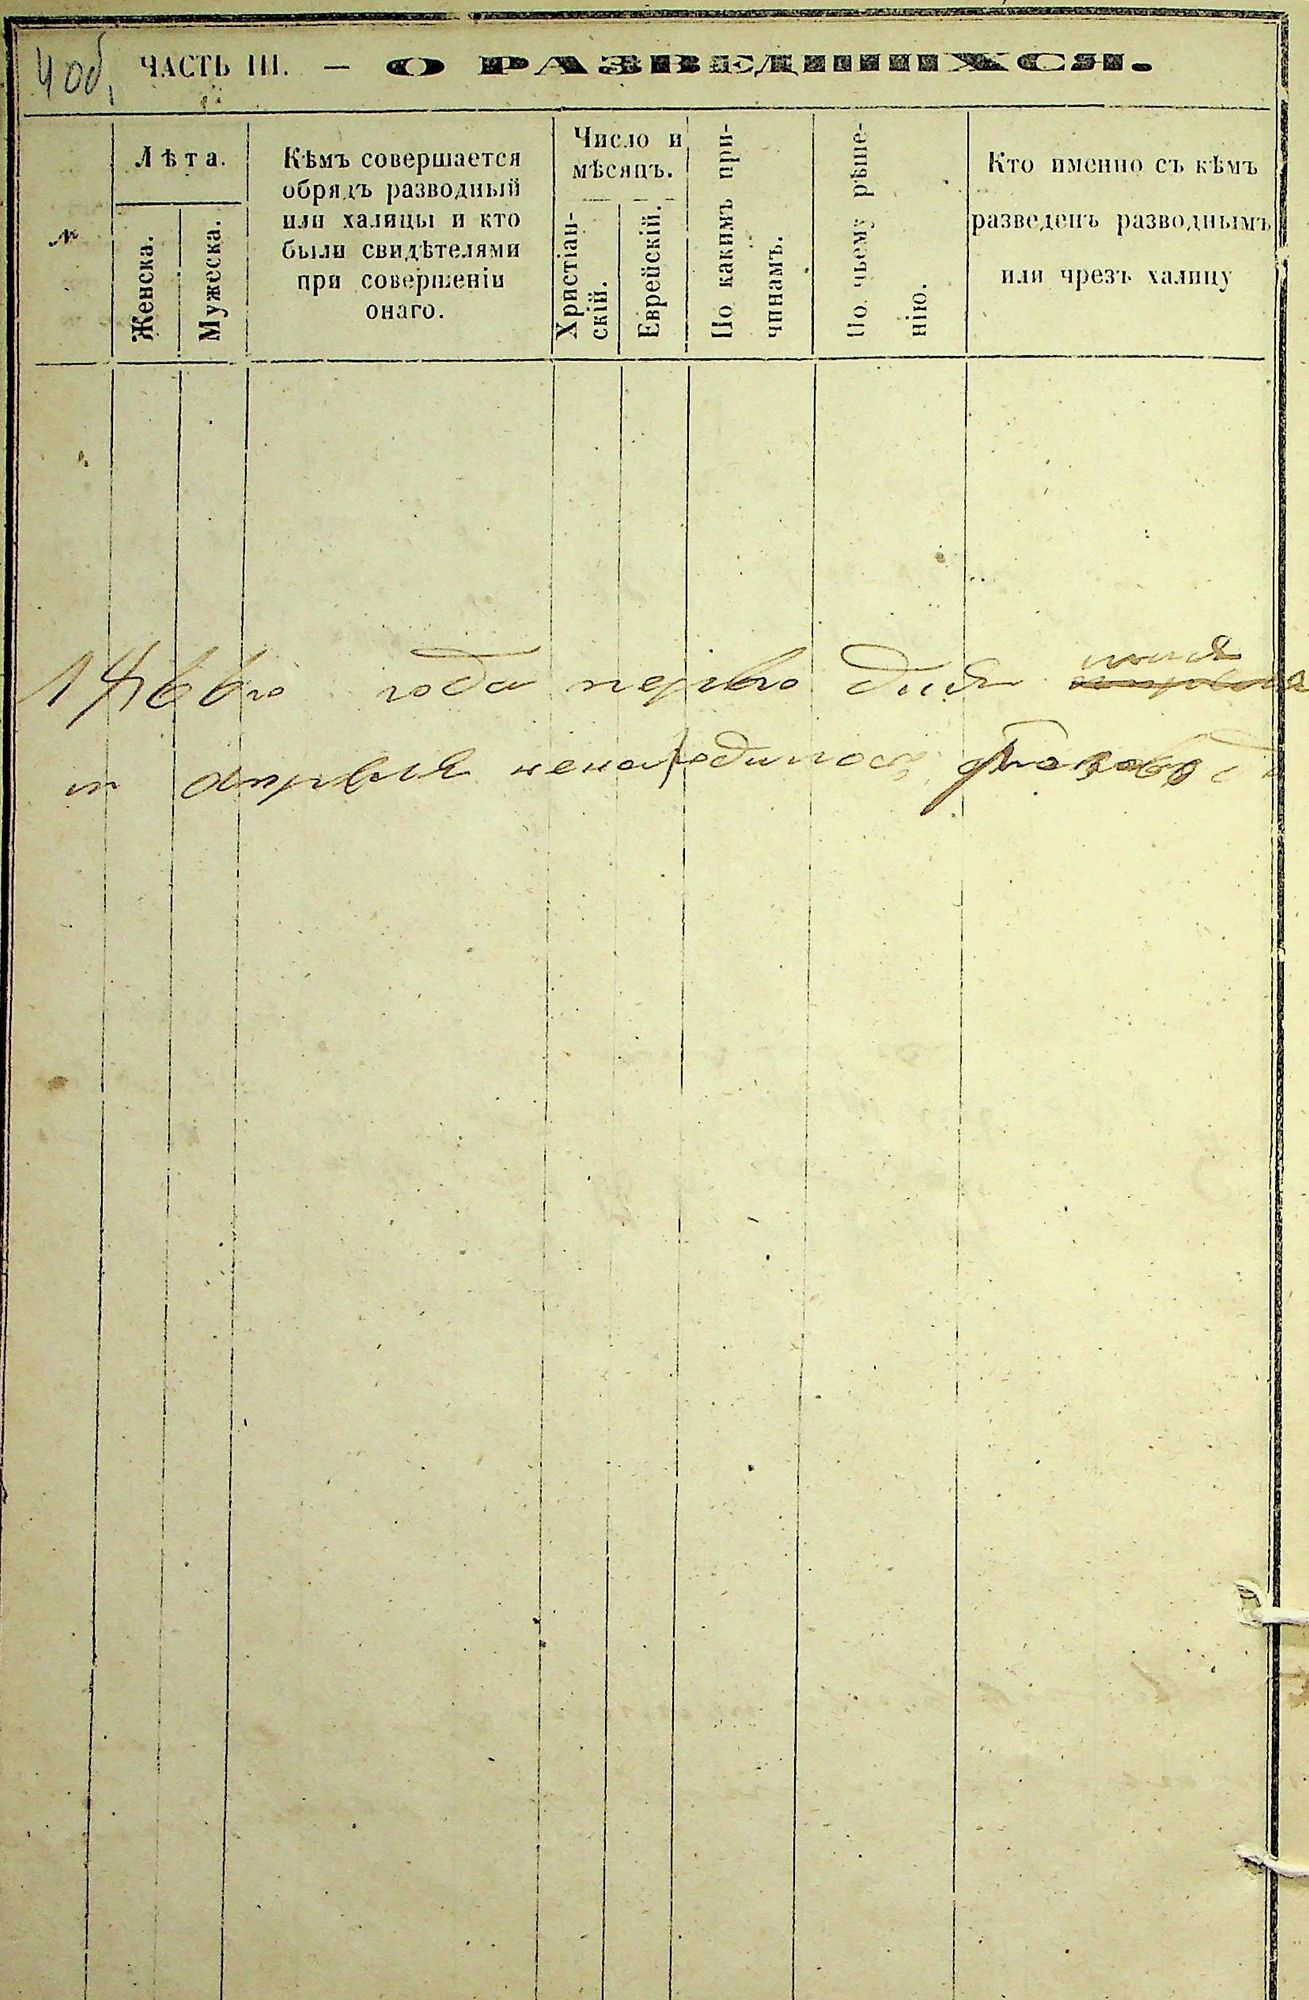 4 об.
ЧАСТЬ III. — О РАЗВЕДШИХСЯ.
№
Лѣта.
Женска.
Мужеска.
Кѣмъ совершается
обрядъ разводный
или халицы и кто
были свидѣтелями
при совершеніи
онаго.
Число и
мѣсяцъ.
Христіан-
скій.
Еврейскій.
По какимъ при-
чинамъ.
По чьему рѣше-
нію.
Кто именно съ кѣмъ
разведенъ разводнымъ
или чрезъ халицу
года перваго дня
апреля